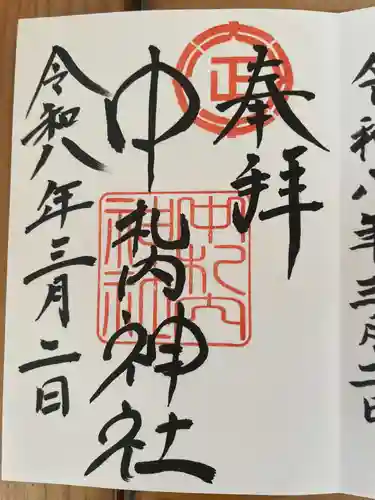 奉拝
正
中札内神社
中札内
神社
令和八年三月二日
令和八年三月二日